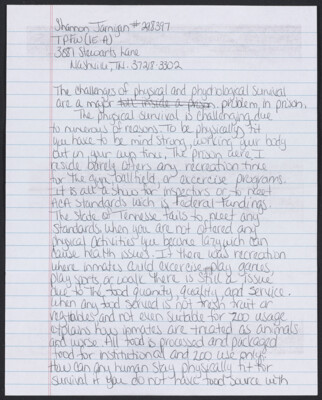 Shannon Jarnigan #248397
TPFW (1E-A)
3881 Stewarts Lane
Nashville, TN. 37218-3302
The challenges of physical and phycological survival
are a major till inside a prison problem in prison.
The phyical survival is challenging due
to numerous of reasons. To be physically fit
you have to be mind strong, working your body
out in your own time, The prison were I
reside barely offers any recreation time
for the gym, ballfield, or excercise programs.
It is all a show for inspectors or to meet
ACA Standards wich is federal fundings.
The State of Tennesse fails to meet any
Standards when you are not offered any
physical activities you become lazy wich can
cause health issues. If there was recreation
where inmates could excercise, play games,
play sports or walk there is still a issue
due to the food quantity, quality, and service.
When any food served is not fresh fruit or
vegtables and not even suitable for zoo usage
explains how inmates are treated as animals
and worse. All food is processed and packaged
food for institutional and zoo use only.
How can any human stay physically fit for
survival if you do not have food source with